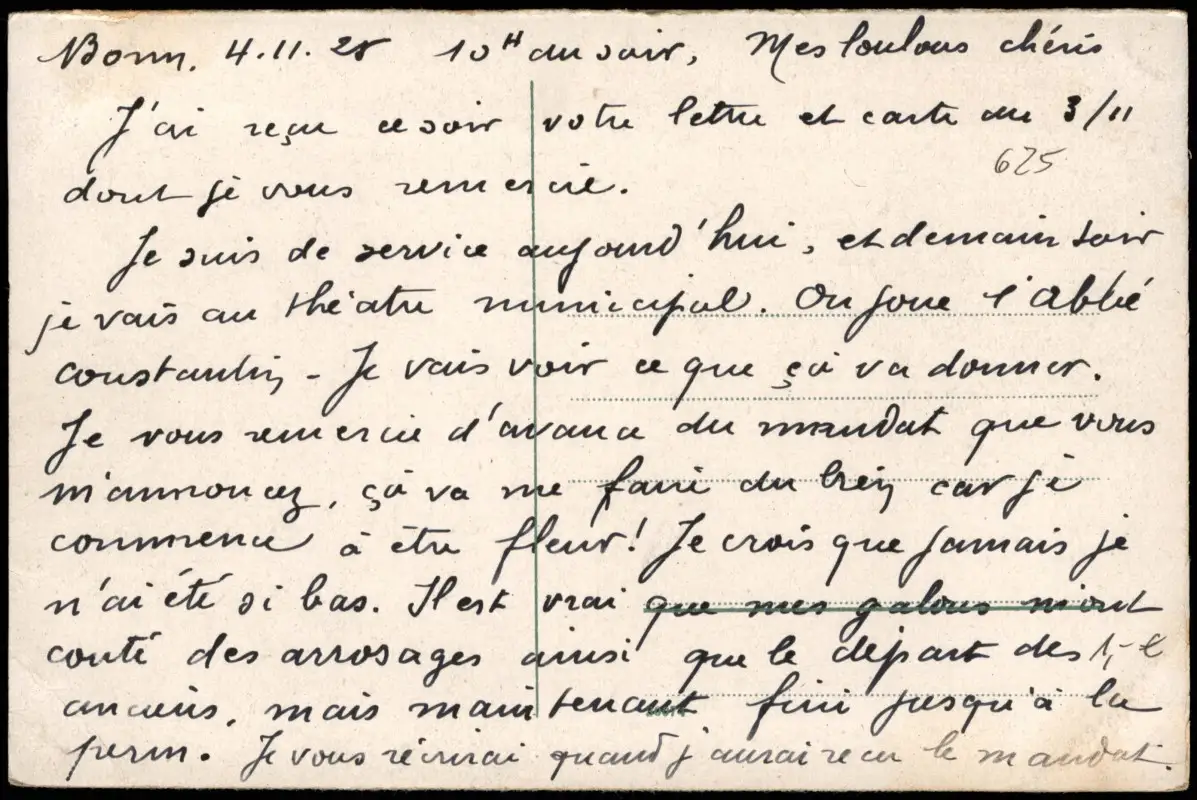 Bonn, 4.11.28 10H du soir, Mes loulous chéris
J'ai reçu ce soir votre lettre et carte du 3/11
625
dont je vous remercie.
Je suis de service aujourd'hui, et demain soir
je vais au théatre municipal. On joue l'Abbé
constantin - Je vais voir ce que çà va donner.
Je vous remercie d'avance du mandat que vous
m'annoncez, çà va me faire du bien car je
commence à être fleur! Je crois que jamais je
n'ai été si bas. Il est vrai que mes galons m'ont
couté des arrosages ainsi que le départ des
anciens, mais maintenant fini jusqu'à la
perm. Je vous récrirai quand j'aurai recu le mandat.